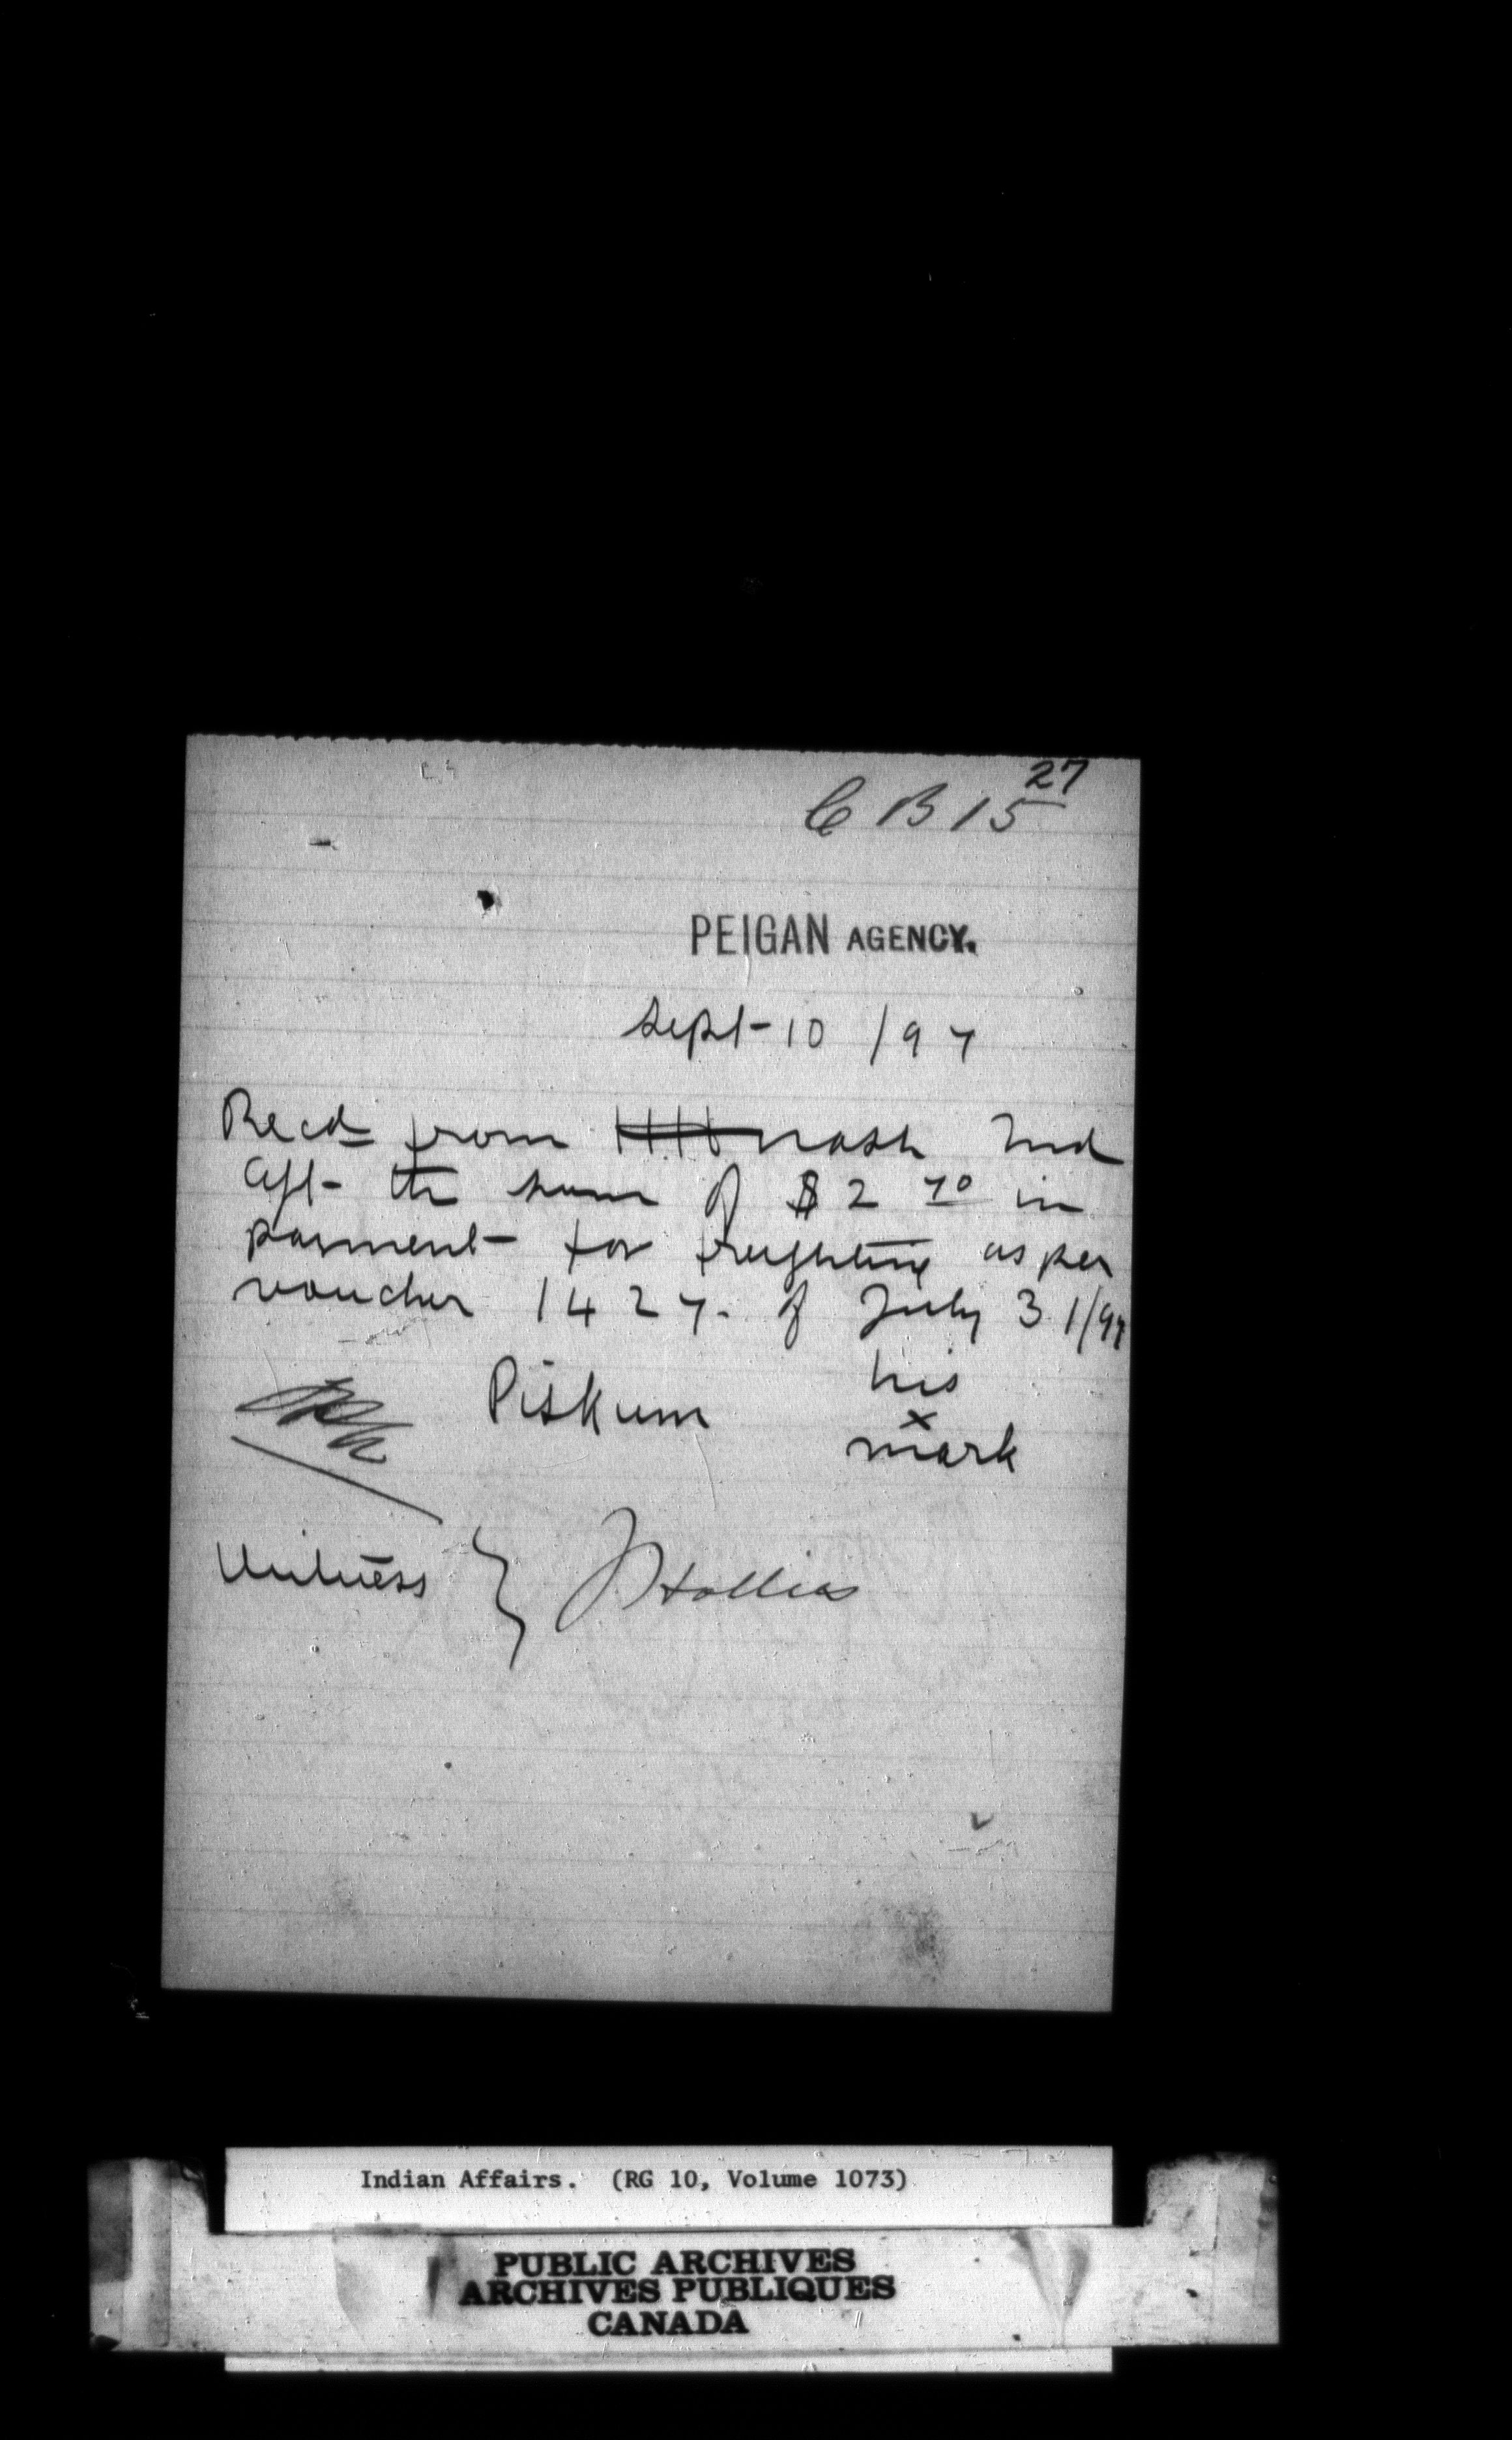 27
C B 15
PEIGAN AGENCY.
Sept 10 /97
Recd from HH Nash Ind
Agt the sum of $2 70 in
payment for freighting as per
voucher 1427. of July 31/97
his
Piskum x
mark
Witness } J Hollies
Indian Affairs. (RG 10, Volume 1073)
PUBLIC ARCHIVES
ARCHIVES PUBLIQUES
CANADA